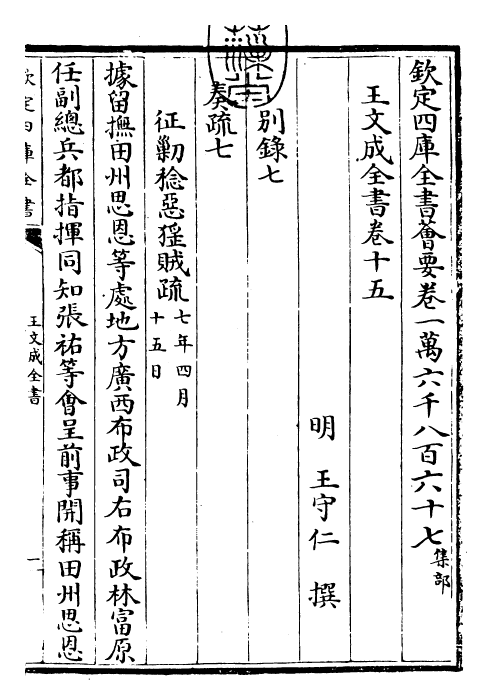 欽定四庫全書薈要卷一萬六千八百六十七集部
王文成全書卷十五
明 王守仁 撰
別錄七
奏疏七
征勦稔惡猺賊疏七年四月十五日
據留撫田州思恩等處地方廣西布政司右布政林富原
任副總兵都指揮同知張祐等會呈前事開稱田州思恩
欽定四庫全書
王文成全書
一